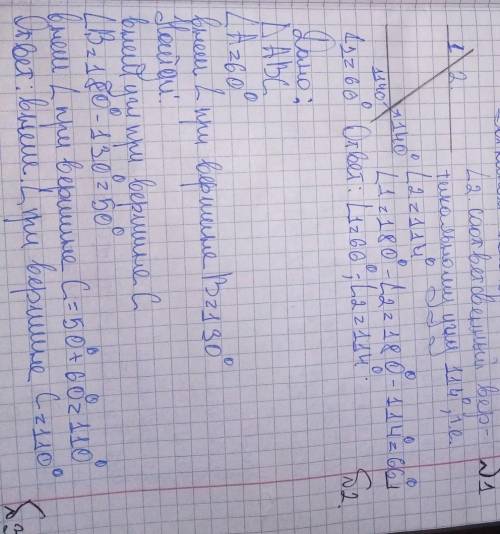 N1
∠2 соответственный верт-
тикальным углу 114°, т.е.
∠2=114°
1
2
114°
∠1=180°-∠2=180°-114=66°
∠1=66° Ответ: ∠1=66°; ∠2=114°.
N2.
Дано:
∠ABC
∠A=60°
внеш ∠ при вершине B=130°
Найти:
внеш угл при вершине C
∠B=180°-130°=50°
внеш ∠ при вершине C=50°+60°=110°
Ответ: внеше ∠ при вершине C=110°
N3